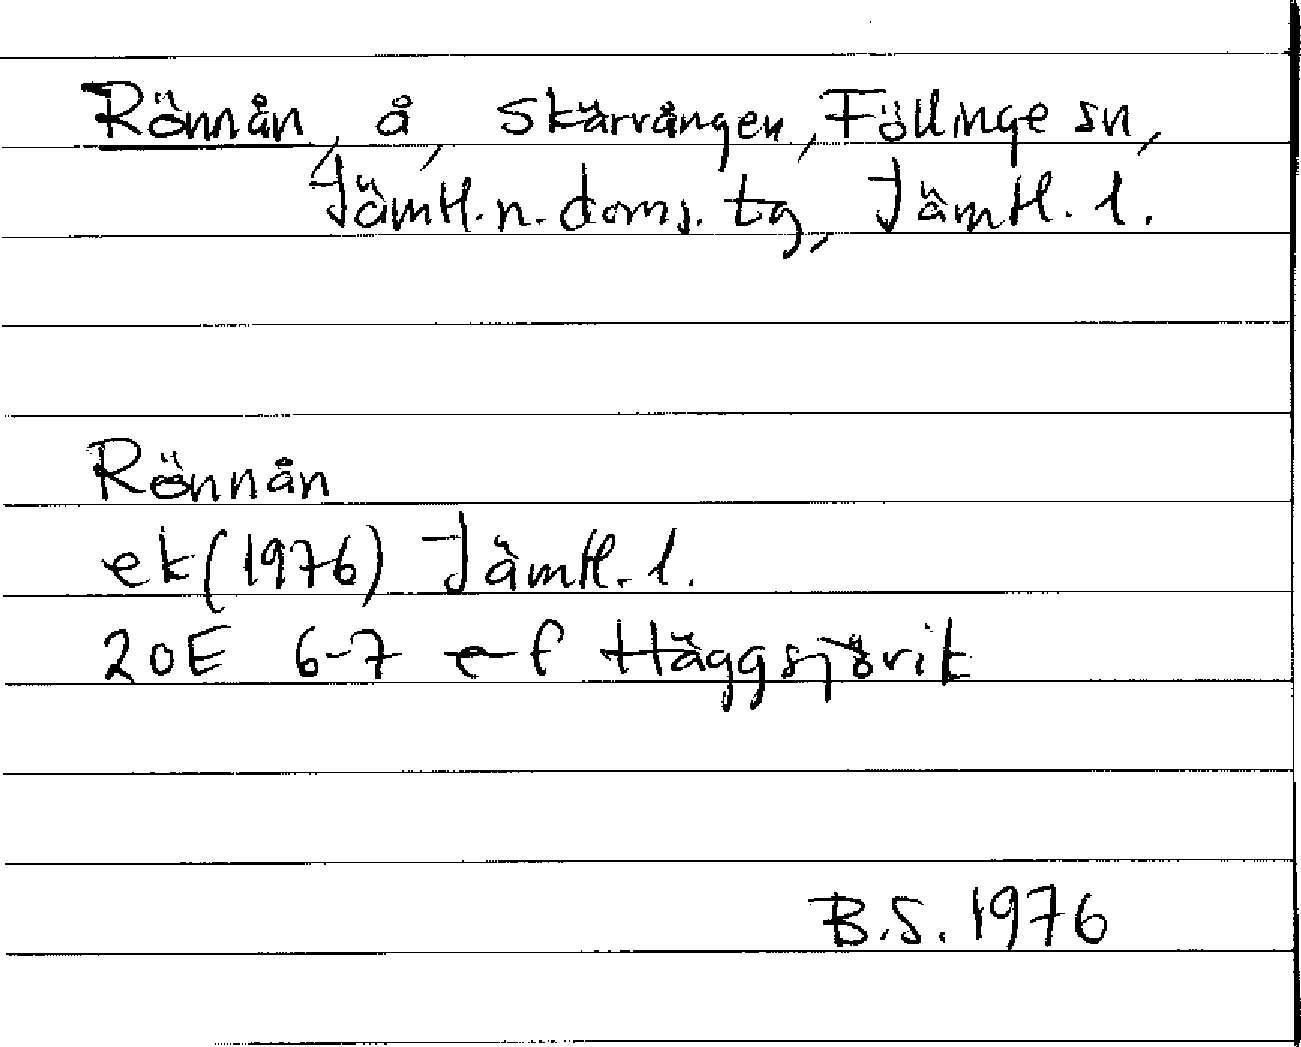 Rönnån, å, Skärvången, Föllinge sn,
Jämtl. n. doms. tg, Jämtl. l.
Rönnån
ek (1976) Jämtl. l.
20E 6-7 e-f Häggsjövik
B.S. 1976